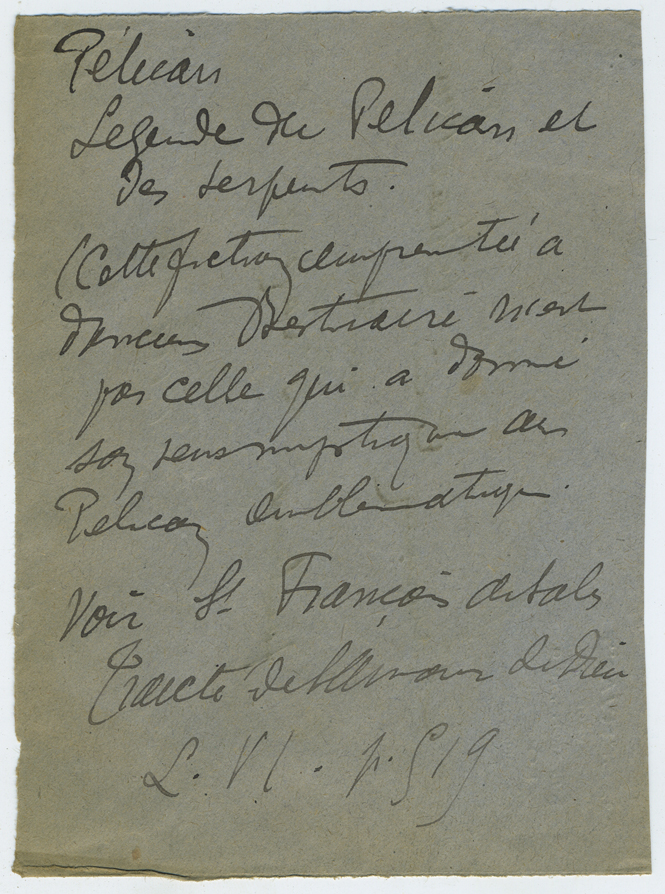 Pélican
Legende du Pelican et
des serpents.
(Cette fiction empruntée a
d'anciens Bestiaire n'est
pas celle qui a donné
son sens mystique au
Pelican emblematique.
Voir St François de Sales
Traicté de l'Amour de Dieu
L. VI. p. 519